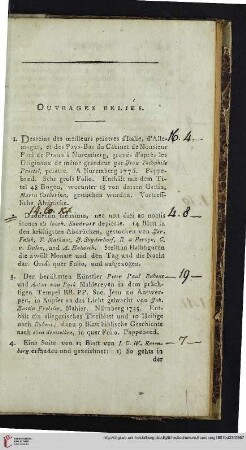 OUVRAGES RELIÉS.
1. Desseins des meilleurs peintres d'Italie, d'Alle-
magne, et des Pays-Bas du Cabinet de Monsieur
Paul de Praun à Nuremberg, gravés d'après les
Originaux de même grandeur par Jean Théophile
Prestel, peintre. A Nuremberg 1776. Pappe-
band. Sehr groß Folio. Enthält mit dem Ti-
tel 48 Bogen, worunter 18 von dessen Gattin,
Maria Catharina, gestochen worden. Vortreff-
liche Abdrücke.
16. 4.
2. Duodecim mensium, nec non diei ac noctis
Joach. Sandrart depictae. 14 Blatt in
den kräftigsten Abdrücken, gestochen von Jer.
Falck, R. Persyn, C.
v. Dalen, und A. Haluech. Stellen in Halbfiguren
die zwölf Monate und den Tag und die Nacht
dar. Groß quer Folio, und aufgezogen.
4. 8
3. Der berühmten Künstler Peter Paul Rubens
und Anton van Dyck Mahlereyen in dem präch-
tigen Tempel RR. PP. Soc. Jesu zu Antwer-
pen, in Kupfer an das Licht gebracht von Joh.
Justin Preisler, Mahler. Nürnberg 1735. Ent-
hält ein allegorisches Titelblatt und 10 Heilige
nach Rubens, dann 9 Blatt biblische Geschichte
nach eben demselben, in quer Folio. Pappeband.
19
4. Eine Suite von 12 Blatt von J. C. W.
berg erfunden und gezeichnet: 1) So gehts in
der
7